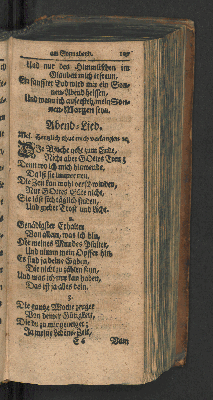 am Sonnabend.
Und nur des Himmlischen im
Glauben mich erfreun,
Ein sanffter Tod wird mir ein Son-
nen-Abend heissen,
Und wann ich aufersteh, mein Son-
nen-Morgen seyn.
Abend-Lied.
Mel. Hertzlich thut mich verlangen ꝛc.
Die Woche geht zum Ende,
Nicht aber GOttes Treu;
Denn wo ich mich hinwende,
Da ist sie immer neu.
Die Zeit kan wohl verschwinden,
Nur GOttes Güte nicht,
Sie läst sich täglich finden,
Und giebet Trost und Licht.
2.
Gnädigster Erhalter
Von allem, was ich bin,
Hör meines Mundes Psalter,
Und nimm mein Opffer hin.
Es sind ja deine Gaben,
Die nicht zu zählen seyn,
Und was ich nur kan haben,
Das ist ja alles dein.
3.
Die gantze Woche zeuget
Von deiner Gütigkeit,
Die du zu mir geneiget;
Ja meine Lebens-Zeit,